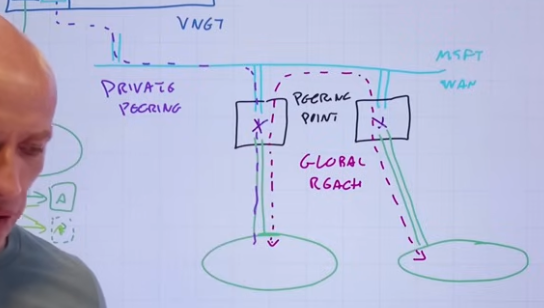 VNGT
MSFT
WAN
PRIVATE
PEERING
PEERING
POINT
X
GLOBAL
REACH
A